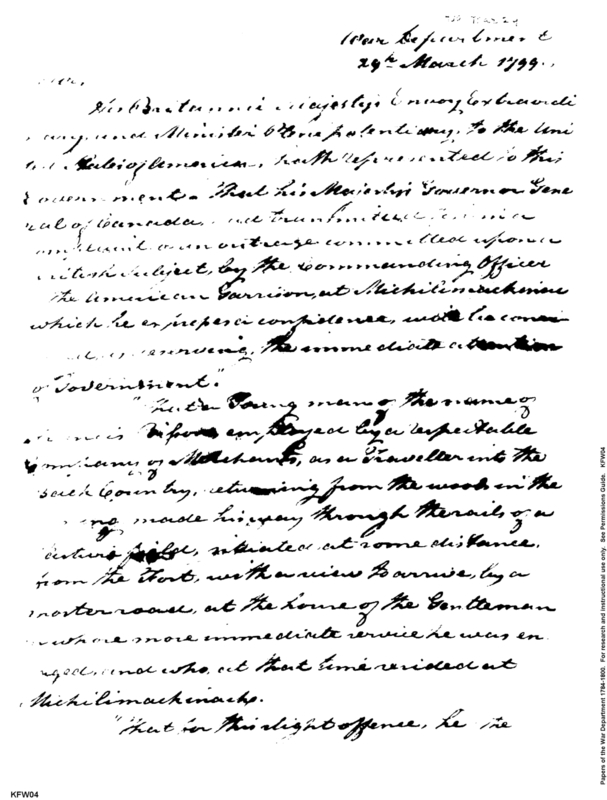 War Department
29th March 1799.
His Britannic Majesty's Envoy Extraordi
and Minister Plenipotentiary, to the Uni
States of America, hath represented to this
Government. That his Majesty's Governor Gene
ral of Canada, had transmitted to him a
complaint of an outrage committed upon a
British subject, by the Commanding Officer
the American Garrison, at Michilimackinac
which he expresses a confidence, will be consi
deserving, the immediate attention
of Government."
"That a Young man of the name of
employed by a respectable
Company of Merchants, as a Traveller into the
back Country, returning from the woods in the
made his way through the rails of a
pasture field, situated at some distance,
from the Fort, with a view to arrive, by a
shorter road, at the house of the Gentleman
in whose more immediate service he was en
gaged, and who, at that time resided at
Michilimackinack.
"That for this slight offence, he the
KFW04
Papers of the War Department 1784-1800. For research and instructional use only. See Permissions Guide. KFW04